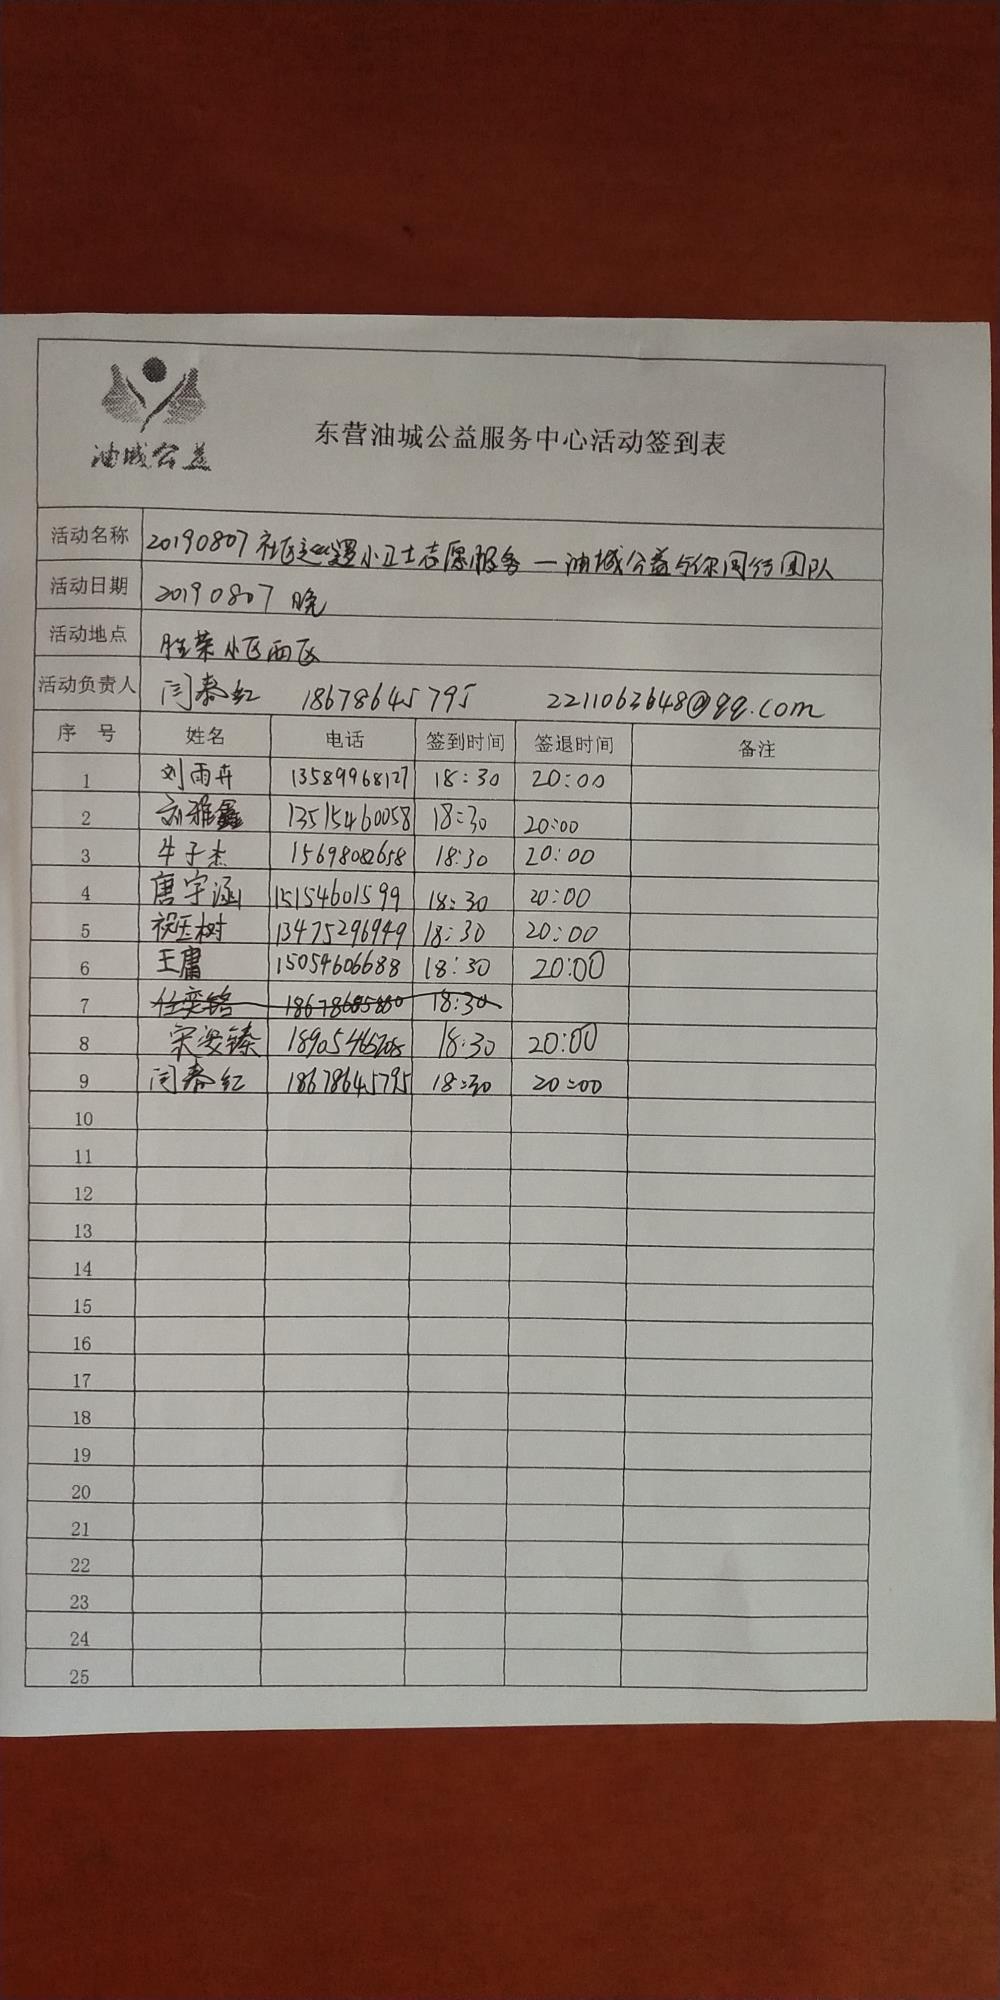 油城公益
东营油城公益服务中心活动签到表
活动名称 20190807 社区 小卫士志愿服务—油城公益与你同行团队
活动日期 20190807 晚
活动地点 胜荣小区西区
活动负责人 闫春红 18678645795 2211063648@qq.com
序号 姓名 电话 签到时间 签退时间 备注
1 刘雨卉 13589968127 18:30 20:00
2 刘雅鑫 13515460058 18:30 20:00
3 牛子杰 15698082658 18:30 20:00
4 唐宇涵 15154601599 18:30 20:00
5 祝玉树 13475296949 18:30 20:00
6 王庸 15054606688 18:30 20:00
7 任奕铭 18:30
8 宋姿臻 18:30 20:00
9 闫春红 18678645795 18:30 20:00
10
11
12
13
14
15
16
17
18
19
20
21
22
23
24
25